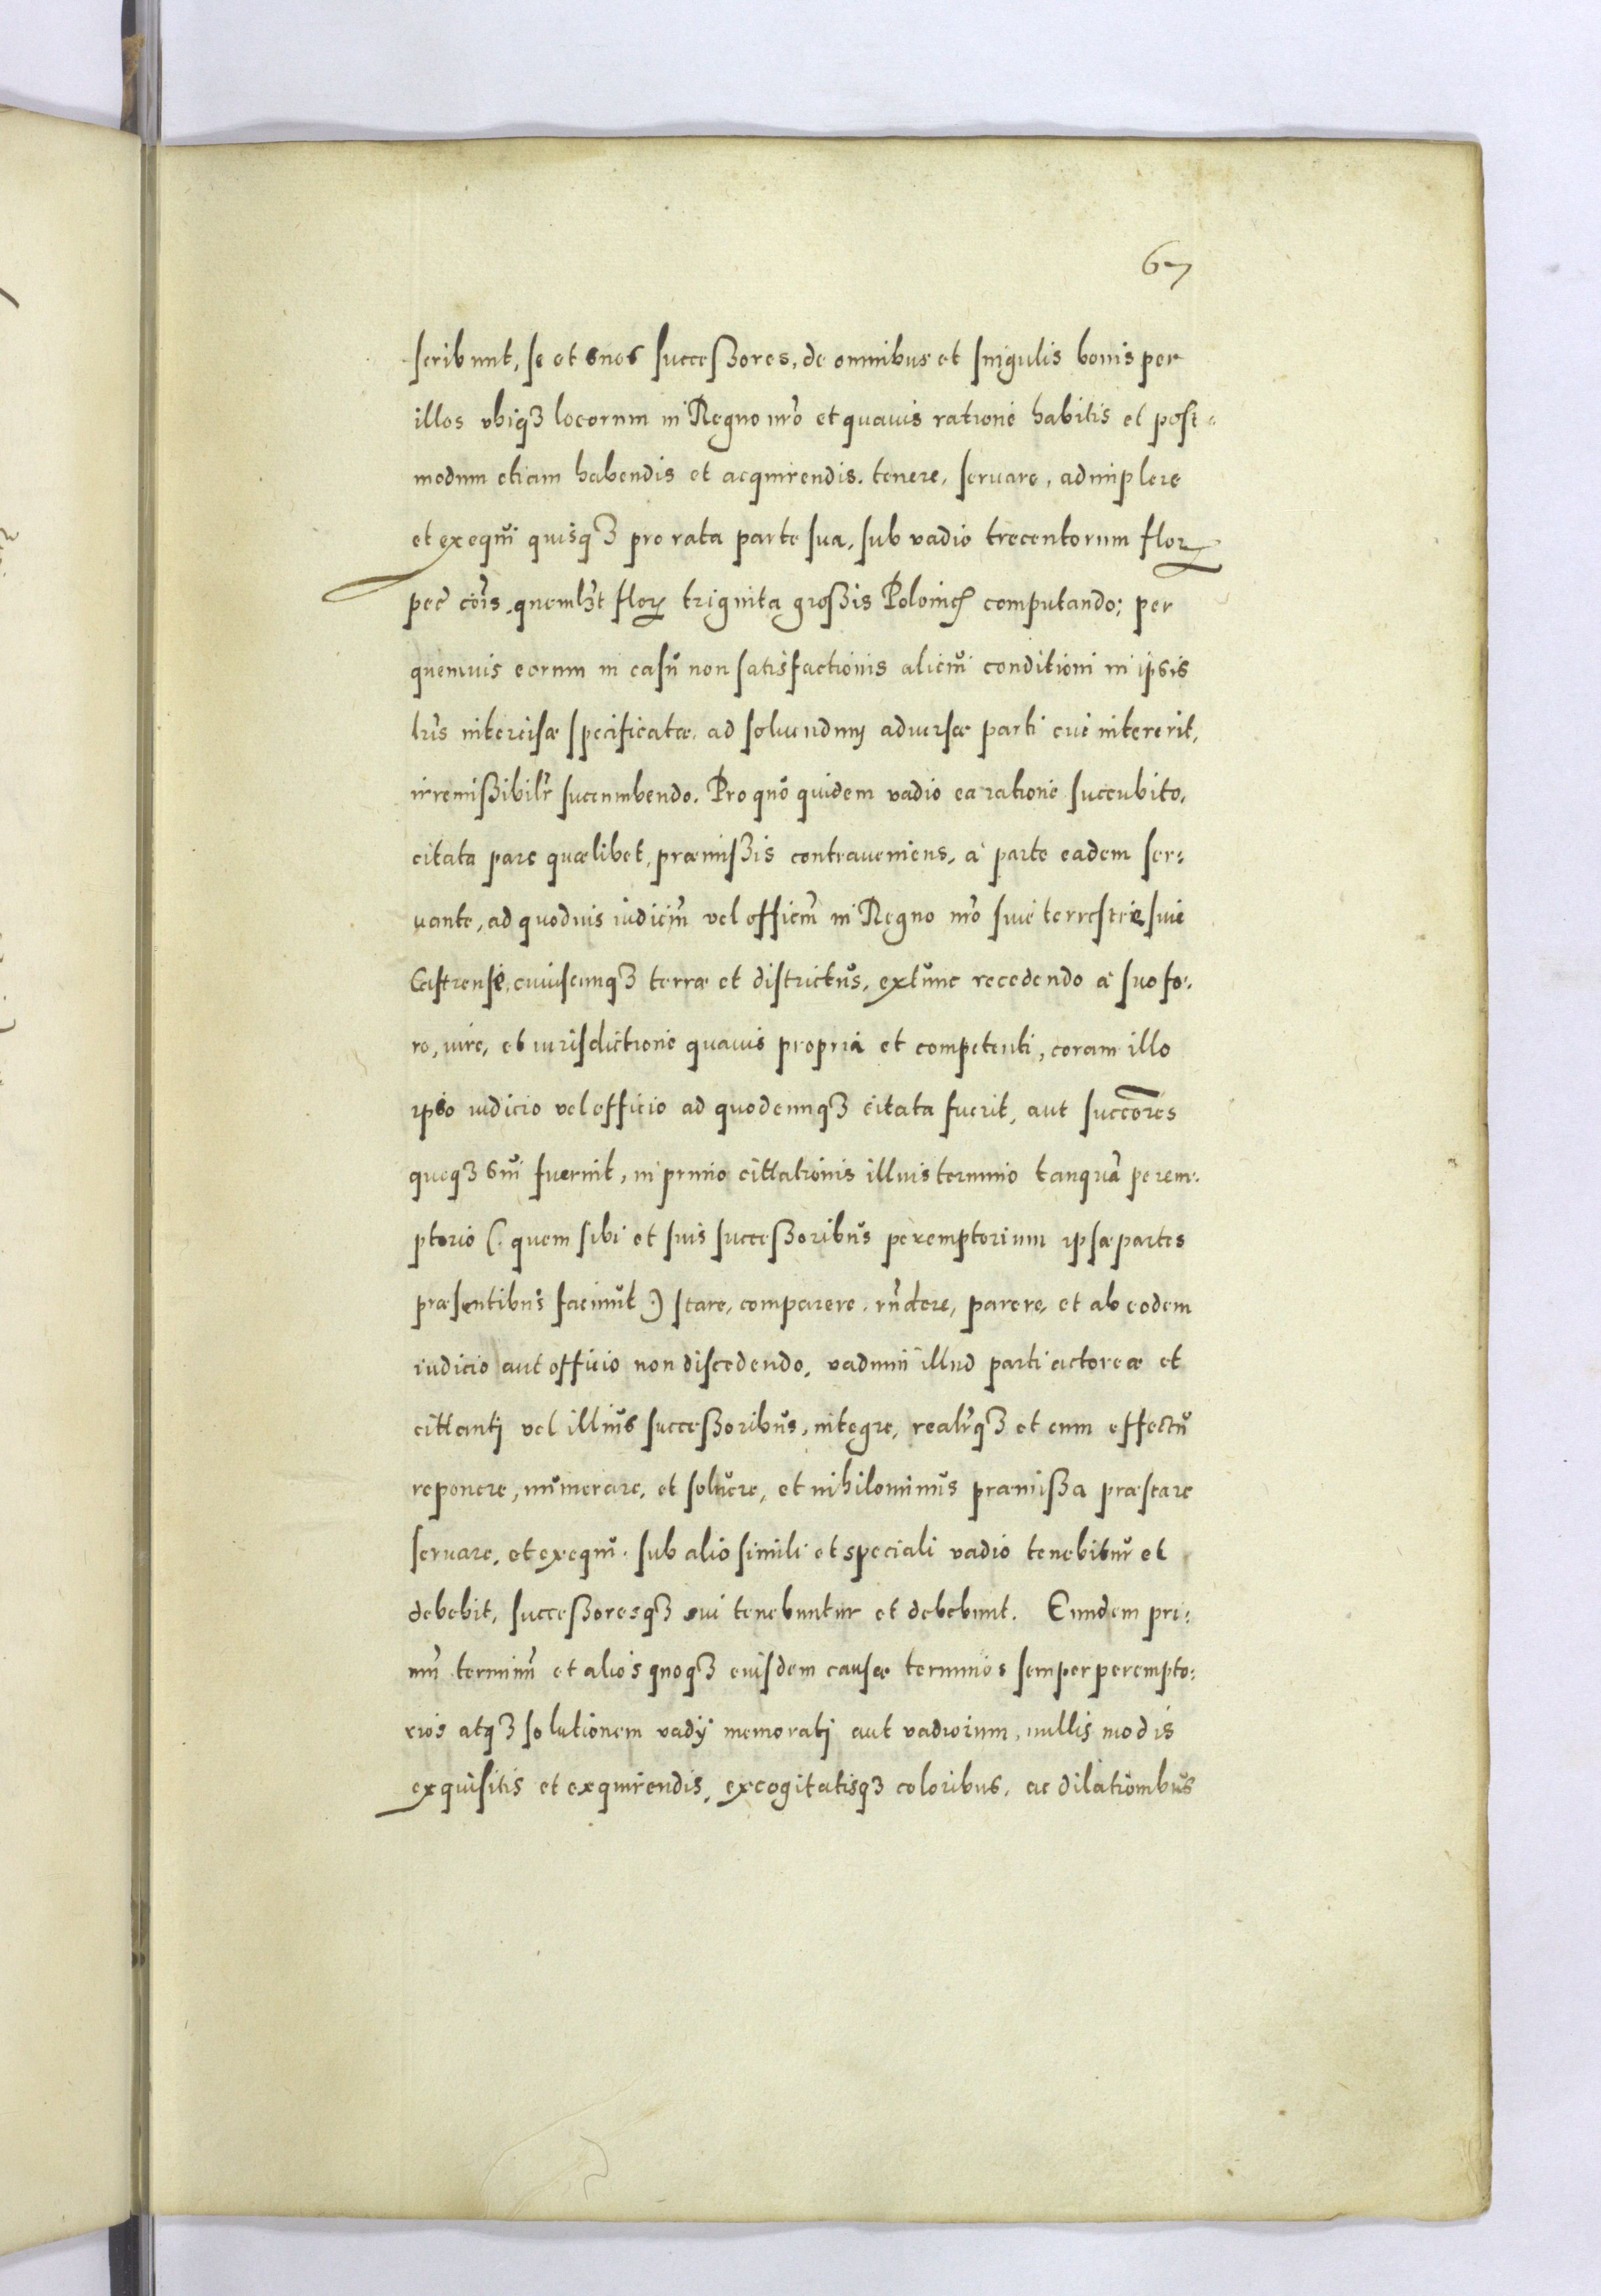 67
scribunt, se et suos successores, de omnibus et singulis bonis per
illos vbiqꝫ locorum in Regno nr̃o et quauis ratione habitis et post=
modum etiam habendis et acquirendis. tenere, seruare, adimplere
et exequi quisqꝫ pro rata parte sua, sub vadio trecentorum florꝝ
pec̃ cõis. quemlꝫt florꝝ triginta grossis Polonic̃ computando; per
quemuis eorum in casu non satisfactionis alicui conditioni in ipsis
lr̃is intercisæ specificatæ, ad soluendum aduersæ parti cui intererit,
irremissibilr̃ succumbendo. Pro quo quidem vadio ea ratione succubito,
citata pars quælibet, præmissis contraueniens, à parte eadem ser=
uante, ad quoduis iudiciũ vel officiũ in Regno nr̃o siue terrestre siue
Castrense, cuiuscunqꝫ terræ et districtus, extunc recedendo à suo fo=
ro, iure, et iurisdictione quauis propria et competenti, coram illo
ipso iudicio vel officio ad quodcunqꝫ citata fuerit, aut succ̃ores
quoqꝫ sui fuerint, in primo cittationis illius termino tanquã perem=
ptorio (. quem sibi et suis successoribus peremptorium ipsæ partes
præsentibus faciunt .) stare, comparere, rñdere, parere, et ab eodem
iudicio aut officio non discedendo, vadium illud parti actoreæ et
cittanti vel illius successoribus, integre, realr̃qꝫ et cum effectu
reponere, numerare, et soluere, et nihilominus præmissa præstare
seruare, et exequi. sub alio simili et speciali vadio tenebitur et
debebit, successoresqꝫ sui tenebuntur et debebunt. Eundem pri=
mũ terminũ et alios quoqꝫ eiusdem causæ terminos semper perempto=
rios atqꝫ solutionem vadij memorati aut vadiorum, nullis modis
exquisitis et exquirendis, excogitatisqꝫ coloribus, ac dilationibus